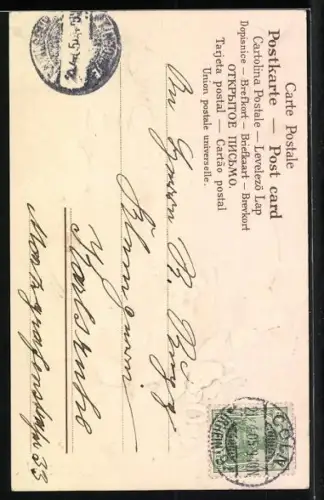 Carte Postale
Postkarte — Post card
Cartolina Postale — Levelező Lap
Dopisnice — Brefkort — Briefkaart — Brevkort
ОТКРЫТОЕ ПИСЬМО.
Tarjeta postal — Cartão postal
Union postale universelle.
CÖLN
An Herrn B.
Karlsruhe
Markgrafenstraße 33